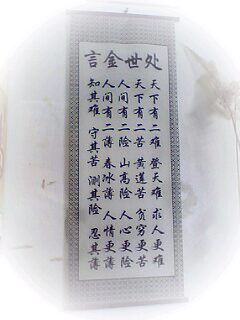 处世金言
天下有二难 登天难 求人更难
天下有二苦 黄莲苦 贫穷更苦
人间有二险 山高险 人心更险
人间有二薄 春冰薄 人情更薄
知其难 守其苦 测其险 忍其薄